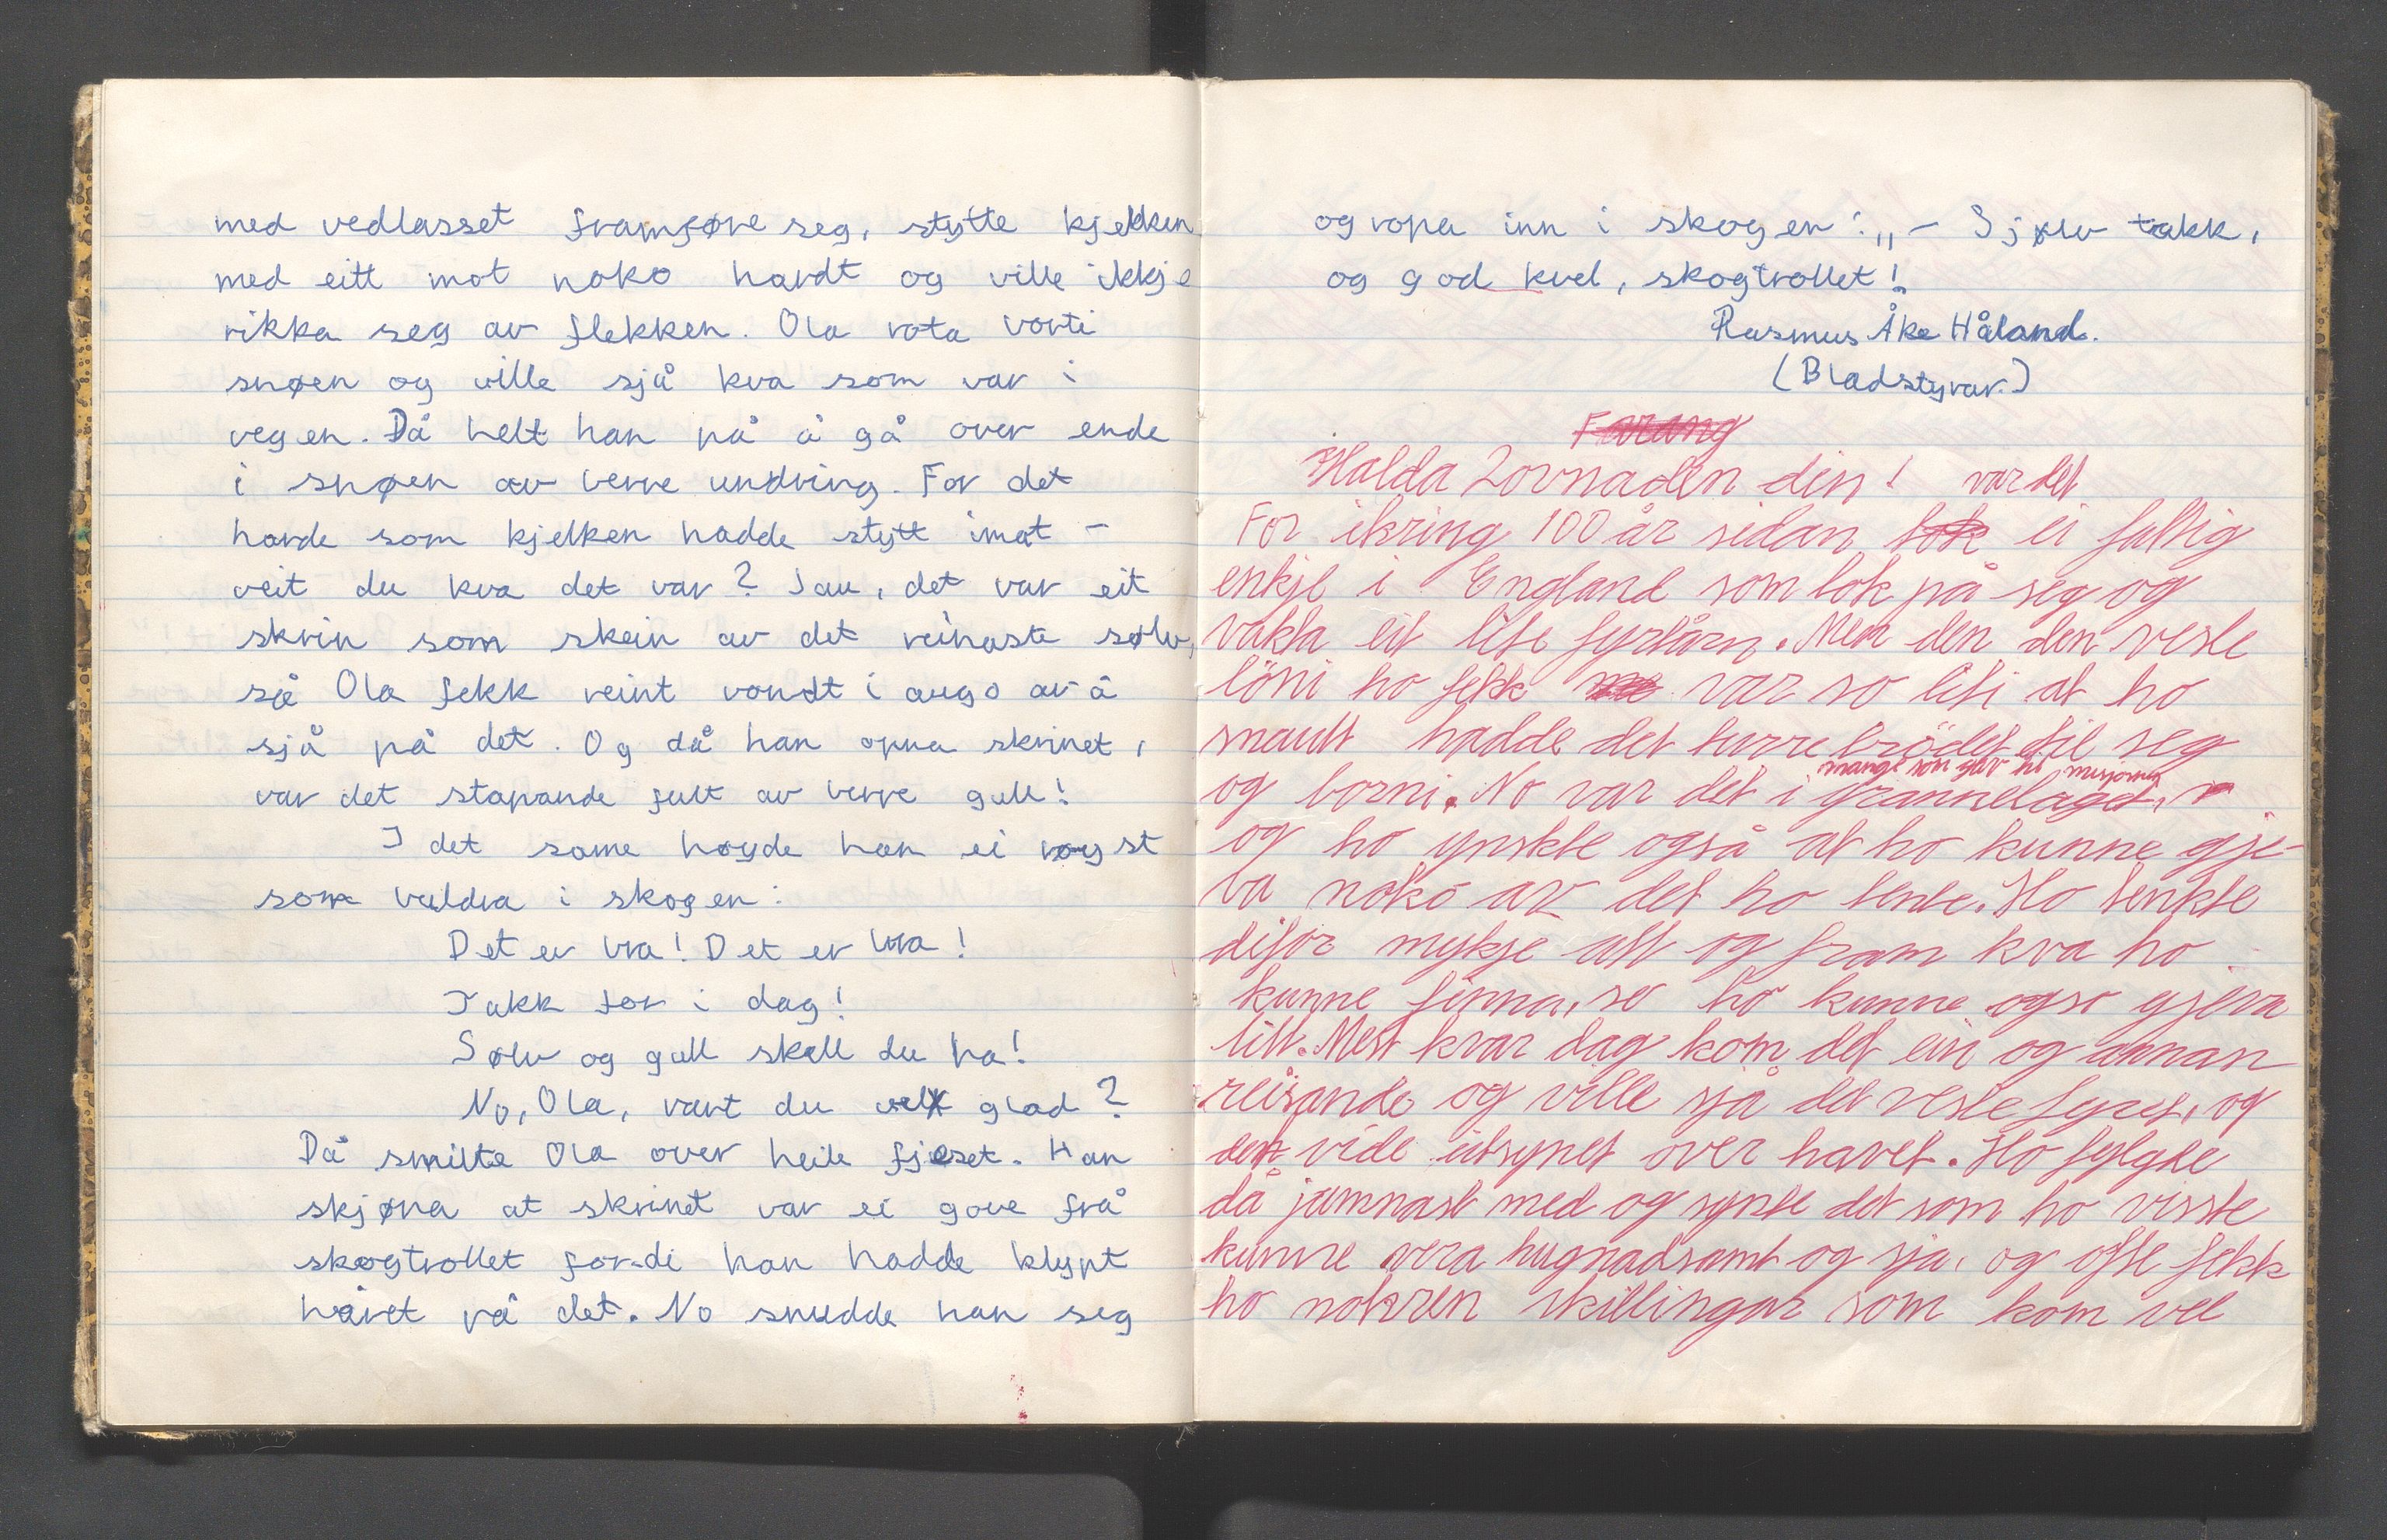 med vedlasset framføre seg, støtte kjelken
med eitt mot noko hardt og ville ikkje
rikka seg av flekken. Ola rota borti
snøen og ville sjå kva som var i
vegen. Då helt han på å gå over ende
i snøen av berre undring. For det
harde som kjelken hadde støtt imot –
veit du kva det var? Jau, det var eit
skrin som skein av det reinaste sølv,
så Ola fekk reint vondt i augo av å
sjå på det. Og då han opna skrinet,
var det stapande fult av berre gull!
I det same høyde han ei røyst
som buldra i skogen:
Det er bra! Det er bra!
Takk for i dag!
Sølv og gull skall du ha!
No, Ola, vart du vel glad?
Då smilte Ola over heile fjeset. Han
skjøna at skrinet var ei gåve frå
skogtrollet fordi han hadde klypt
håret på det. No snudde han seg
og ropa inn i skogen: „– Sjølv takk,
og god kvel, skogtrollet!
Rasmus Åke Håland.
(Bladstyrar.)
Halda Lovnaden din! var det
For ikring 100 år sidan tok ei fattig
enkje i England som tok på seg og
vakta eit lite fyrtårn. Men den den vesle
löni ho fekk var so liti at ho
snaudt hadde det turre brödet til seg
mange som gav til misjonen
og borni. No var det i grannelaget,
og ho ynskte også at ho kunne gje-
va noko av det ho tente. Ho tenkte
difor mykje att og fram kva ho
kunne finna, so ho kunne ogso gjeva
litt. Mest kvar dag kom det ein og annan
reisande og ville sjå det vesle fyret, og
det vide utsynet over havet. Ho fylgde
då jamnast med og synte det som ho visste
kunne vera hugnadsamt og sja, og ofte fekk
ho nokren skillingar som kom vel